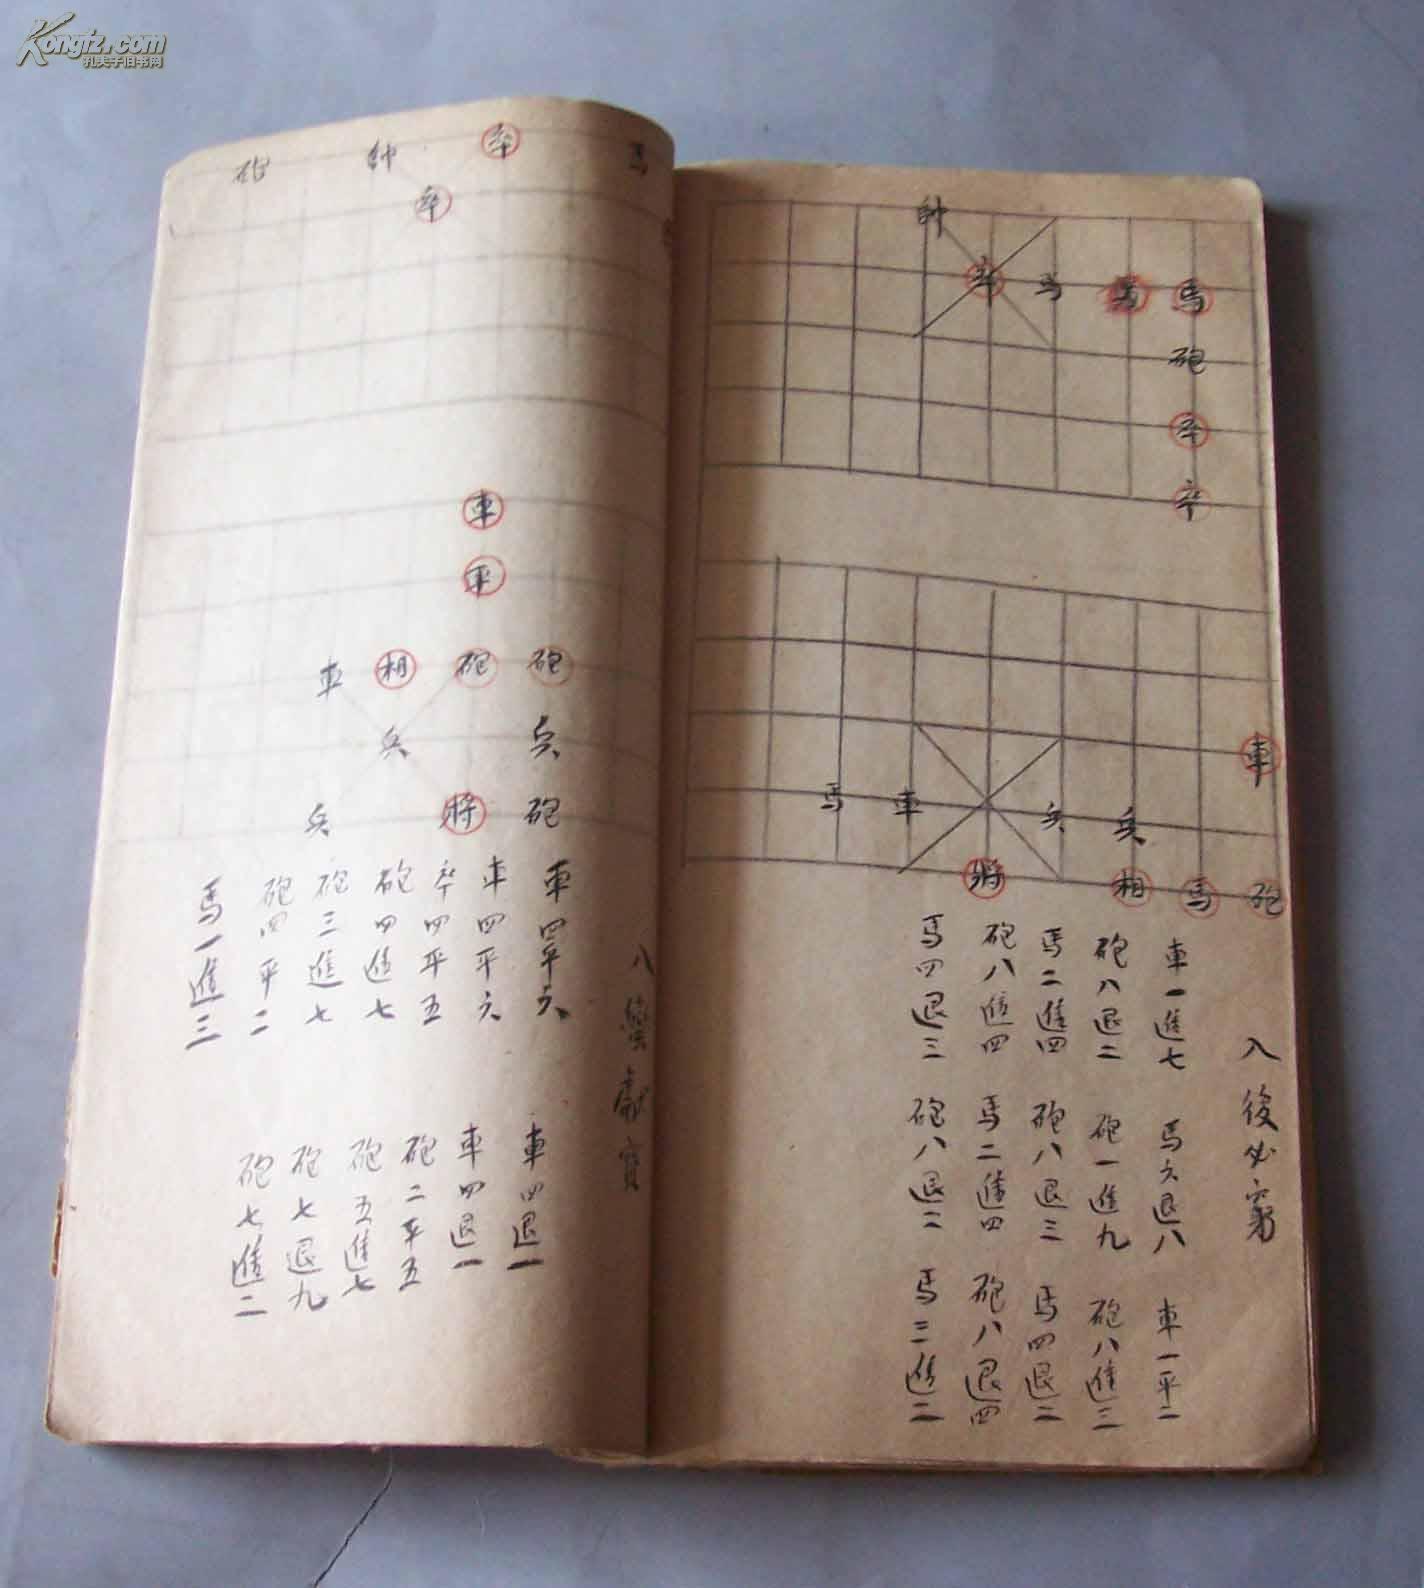 Kongfz.com
孔夫子旧书网
帥
卒 馬 馬
砲
卒
卒
車
馬 車 兵 兵
將 相 馬 砲
入後必窮
車一進七 馬六退八 車一平二
砲八退二 砲一進九 砲八進三
馬二進四 砲八退三 馬四退二
砲八進四 馬二進四 砲八退四
馬四退三 砲八退二 馬三進二
砲 帥 卒 馬
卒
車
車 相 砲 砲
兵 兵
兵 將 砲
八蠻獻寶
車四平六 車四退一
車四平六 車四退一
卒四平五 砲二平五
砲四進七 砲五進七
砲三進七 砲七退九
砲四平二 砲七進二
馬一進三